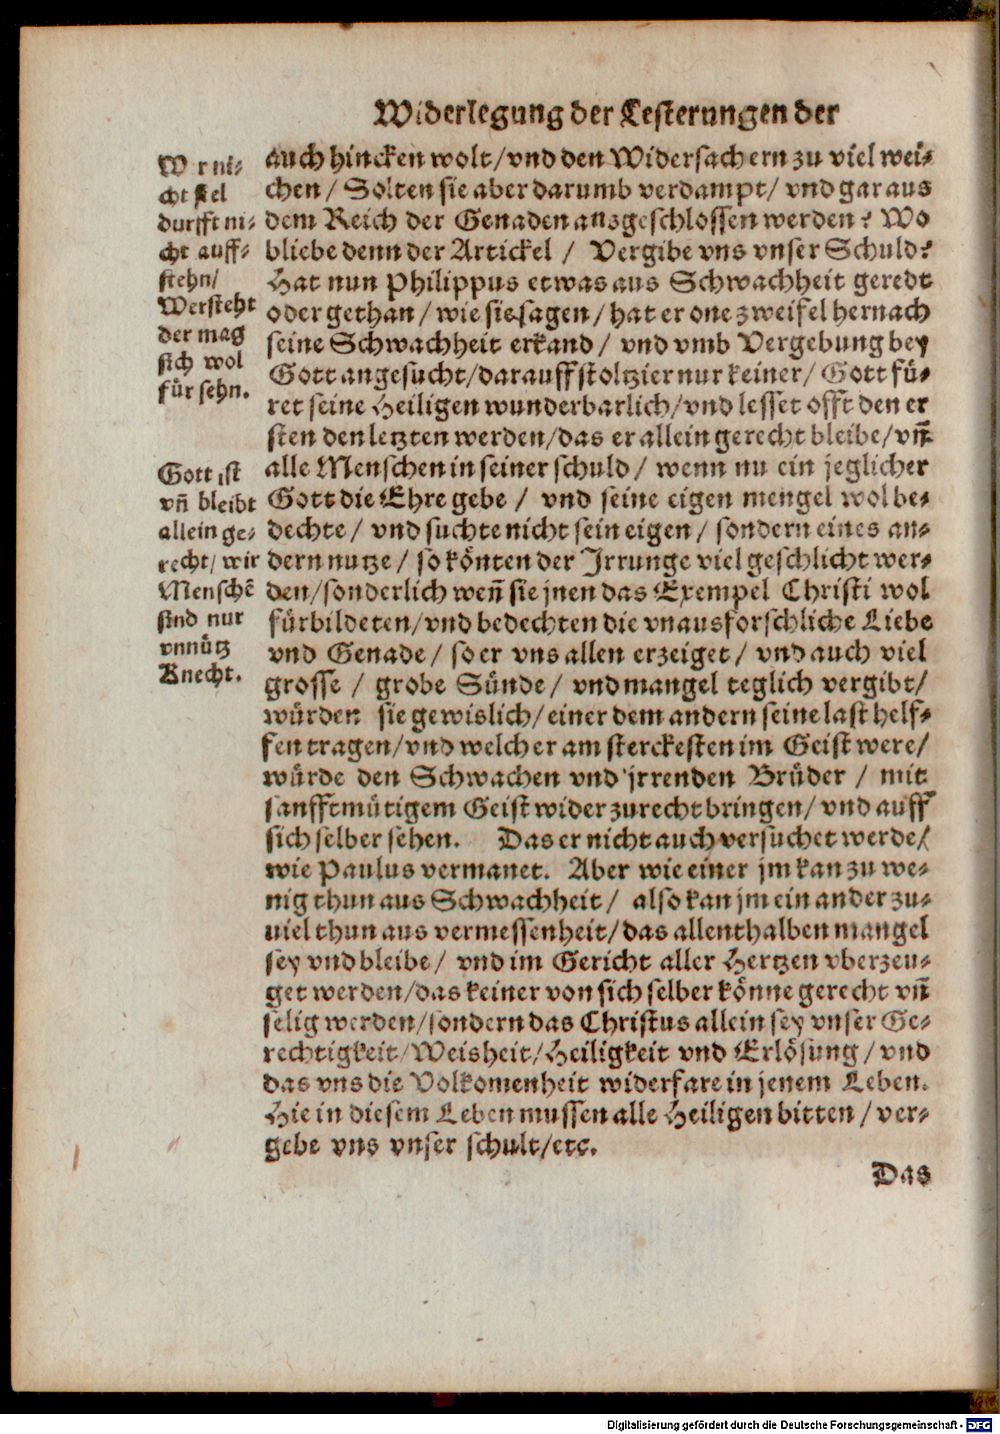 Widerlegung der Lesterungen der
W r ni-
cht fiel
durfft ni-
cht auff-
stehn/
Wersteht
der mag
sich wol
für sehn.
Gott ist
vñ bleibt
allein ge-
recht/ wir
Menschē
sind nur
vnnütz
Knecht.
auch hincken wolt/vnd den Widersachern zu viel wei-
chen/ Solten sie aber darumb verdampt/ vnd gar aus
dem Reich der Genaden ausgeschlossen werden? Wo
bliebe denn der Artickel / Vergibe vns vnser Schuld?
Hat nun Philippus etwas aus Schwachheit geredt
oder gethan/ wie sie sagen/ hat er one zweifel hernach
seine Schwachheit erkand/ vnd vmb Vergebung bey
Gott angesucht/darauff stoltzier nur keiner/ Gott fü-
ret seine Heiligen wunderbarlich/vnd lesset offt den er
sten den letzten werden/das er allein gerecht bleibe/vñ
alle Menschen in seiner schuld/ wenn nu ein jeglicher
Gott die Ehre gebe / vnd seine eigen mengel wol be-
dechte/ vnd suchte nicht sein eigen/ sondern eines an-
dern nutze/ so könten der Irrunge viel geschlicht wer-
den/sonderlich weñ sie jnen das Exempel Christi wol
fürbildeten/vnd bedechten die vnausforschliche Liebe
vnd Genade/ so er vns allen erzeiget/ vnd auch viel
grosse / grobe Sünde/ vnd mangel teglich vergibt/
würden sie gewislich/einer dem andern seine last helf-
fen tragen/vnd welcher am sterckesten im Geist were/
würde den Schwachen vnd jrrenden Brüder / mit
sanfftmütigem Geist wider zurecht bringen/ vnd auff
sich selber sehen. Das er nicht auch versuchet werde/
wie Paulus vermanet. Aber wie einer jm kan zu we-
nig thun aus Schwachheit/ also kan jm ein ander zu-
uiel thun aus vermessenheit/das allenthalben mangel
sey vnd bleibe/ vnd im Gericht aller Hertzen vberzeu-
get werden/das keiner von sich selber könne gerecht vñ
selig werden/sondern das Christus allein sey vnser Ge-
rechtigkeit/Weisheit/Heiligkeit vnd Erlösung/vnd
das vns die Volkomenheit widerfare in jenem Leben.
Hie in diesem Leben mussen alle Heiligen bitten/ ver-
gebe vns vnser schult/etc.
Das
Digitalisierung gefördert durch die Deutsche Forschungsgemeinschaft - DFG